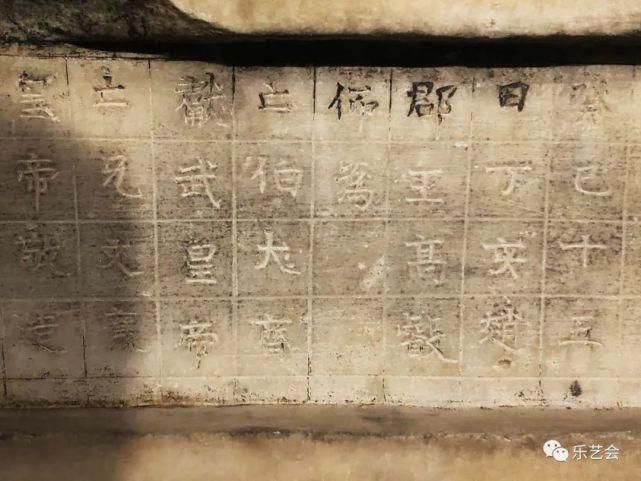 癸巳十五
日丁亥趙
郡王高叡
仰為
亡伯大齊
獻武皇帝
亡兄文襄
皇帝敬造
乐艺会